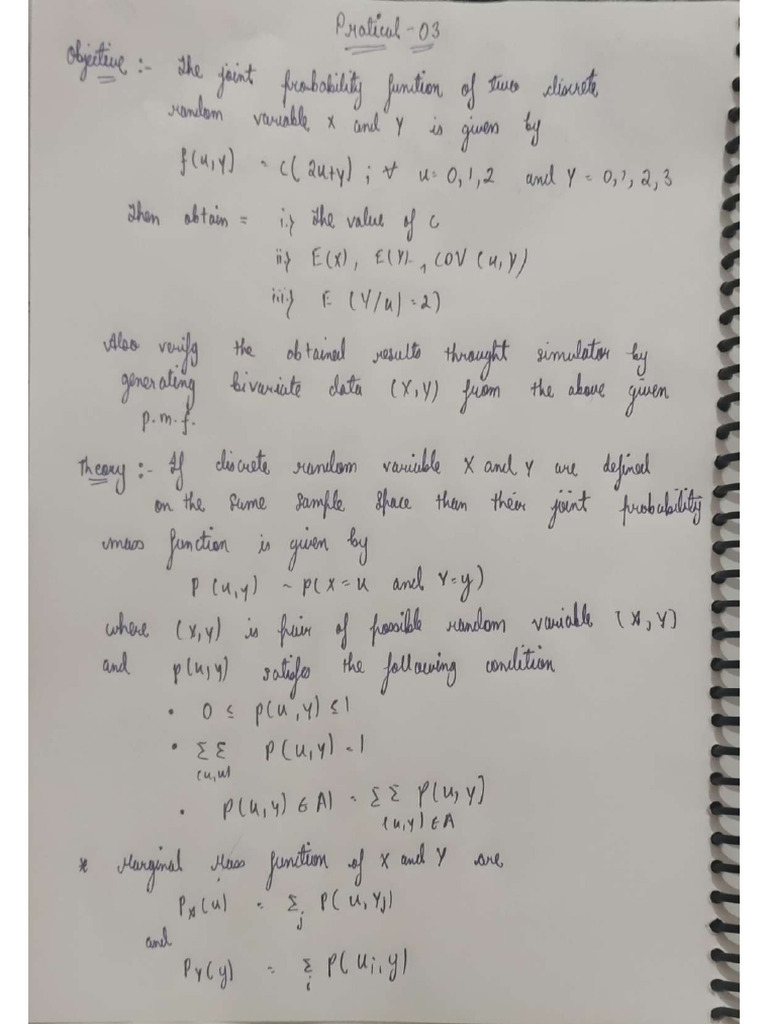 Pratical - 03
Objective :- The joint probability function of two discrete
random variable X and Y is given by
f(u,y) = c(2u+y) ; ∀ u = 0,1,2 and Y = 0,1,2,3
Then obtain = i.) The value of c
ii) E(X), E(Y), COV (u,Y)
iii.) E (Y/u) = 2)
Also verify the obtained results throught simulator by
generating bivariate data (X,Y) from the above given
p.m.f.
Theory :- If discrete random variable X and Y are defined
on the same sample space than their joint probability
mass function is given by
P (u,y) ~ P(X = u and Y = y)
where (x,y) is pair of possible random variable (X,Y)
and p(u,y) satisfes the following condition
• 0 ≤ p(u,y) ≤ 1
• Σ Σ P(u,y) = 1
(u,u)
• P(u,y) ∈ A) = Σ Σ P(u,y]
(u,y) ∈ A
* Marginal Mass function of X and Y are
Px(u) = Σ P(u,Yj)
j
and
PY(y) = Σ P(ui,y)
i